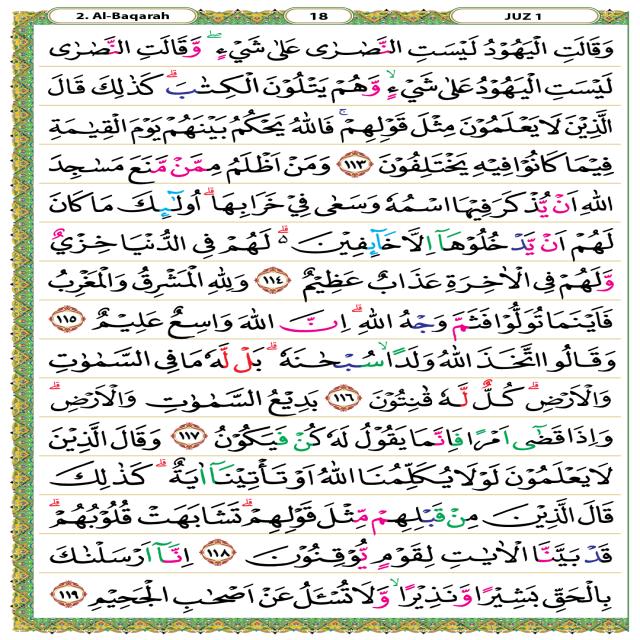 2. Al-Baqarah 18 JUZ 1
وَقَالَتِ الْيَهُوْدُ لَيْسَتِ النَّصٰرٰى عَلٰى شَيْءٍ ۖ وَّقَالَتِ النَّصٰرٰى
لَيْسَتِ الْيَهُوْدُ عَلٰى شَيْءٍ ۙ وَّهُمْ يَتْلُوْنَ الْكِتٰبَ ۗ كَذٰلِكَ قَالَ
الَّذِيْنَ لَا يَعْلَمُوْنَ مِثْلَ قَوْلِهِمْ ۚ فَاللّٰهُ يَحْكُمُ بَيْنَهُمْ يَوْمَ الْقِيٰمَةِ
فِيْمَا كَانُوْا فِيْهِ يَخْتَلِفُوْنَ ١١٣ وَمَنْ اَظْلَمُ مِمَّنْ مَّنَعَ مَسٰجِدَ
اللّٰهِ اَنْ يُّذْكَرَ فِيْهَا اسْمُهٗ وَسَعٰى فِيْ خَرَابِهَا ۗ اُولٰۤىِٕكَ مَا كَانَ
لَهُمْ اَنْ يَّدْخُلُوْهَآ اِلَّا خَاۤىِٕفِيْنَ ەۗ لَهُمْ فِى الدُّنْيَا خِزْيٌ
وَّلَهُمْ فِى الْاٰخِرَةِ عَذَابٌ عَظِيْمٌ ١١٤ وَلِلّٰهِ الْمَشْرِقُ وَالْمَغْرِبُ
فَاَيْنَمَا تُوَلُّوْا فَثَمَّ وَجْهُ اللّٰهِ ۗ اِنَّ اللّٰهَ وَاسِعٌ عَلِيْمٌ ١١٥
وَقَالُوا اتَّخَذَ اللّٰهُ وَلَدًا ۙ سُبْحٰنَهٗ ۗ بَلْ لَّهٗ مَا فِى السَّمٰوٰتِ
وَالْاَرْضِ ۗ كُلٌّ لَّهٗ قٰنِتُوْنَ ١١٦ بَدِيْعُ السَّمٰوٰتِ وَالْاَرْضِ ۗ
وَاِذَا قَضٰٓى اَمْرًا فَاِنَّمَا يَقُوْلُ لَهٗ كُنْ فَيَكُوْنُ ١١٧ وَقَالَ الَّذِيْنَ
لَا يَعْلَمُوْنَ لَوْلَا يُكَلِّمُنَا اللّٰهُ اَوْ تَأْتِيْنَآ اٰيَةٌ ۗ كَذٰلِكَ
قَالَ الَّذِيْنَ مِنْ قَبْلِهِمْ مِّثْلَ قَوْلِهِمْ ۗ تَشَابَهَتْ قُلُوْبُهُمْ ۗ
قَدْ بَيَّنَّا الْاٰيٰتِ لِقَوْمٍ يُّوْقِنُوْنَ ١١٨ اِنَّآ اَرْسَلْنٰكَ
بِالْحَقِّ بَشِيْرًا وَّنَذِيْرًا ۙ وَّلَا تُسْـَٔلُ عَنْ اَصْحٰبِ الْجَحِيْمِ ١١٩